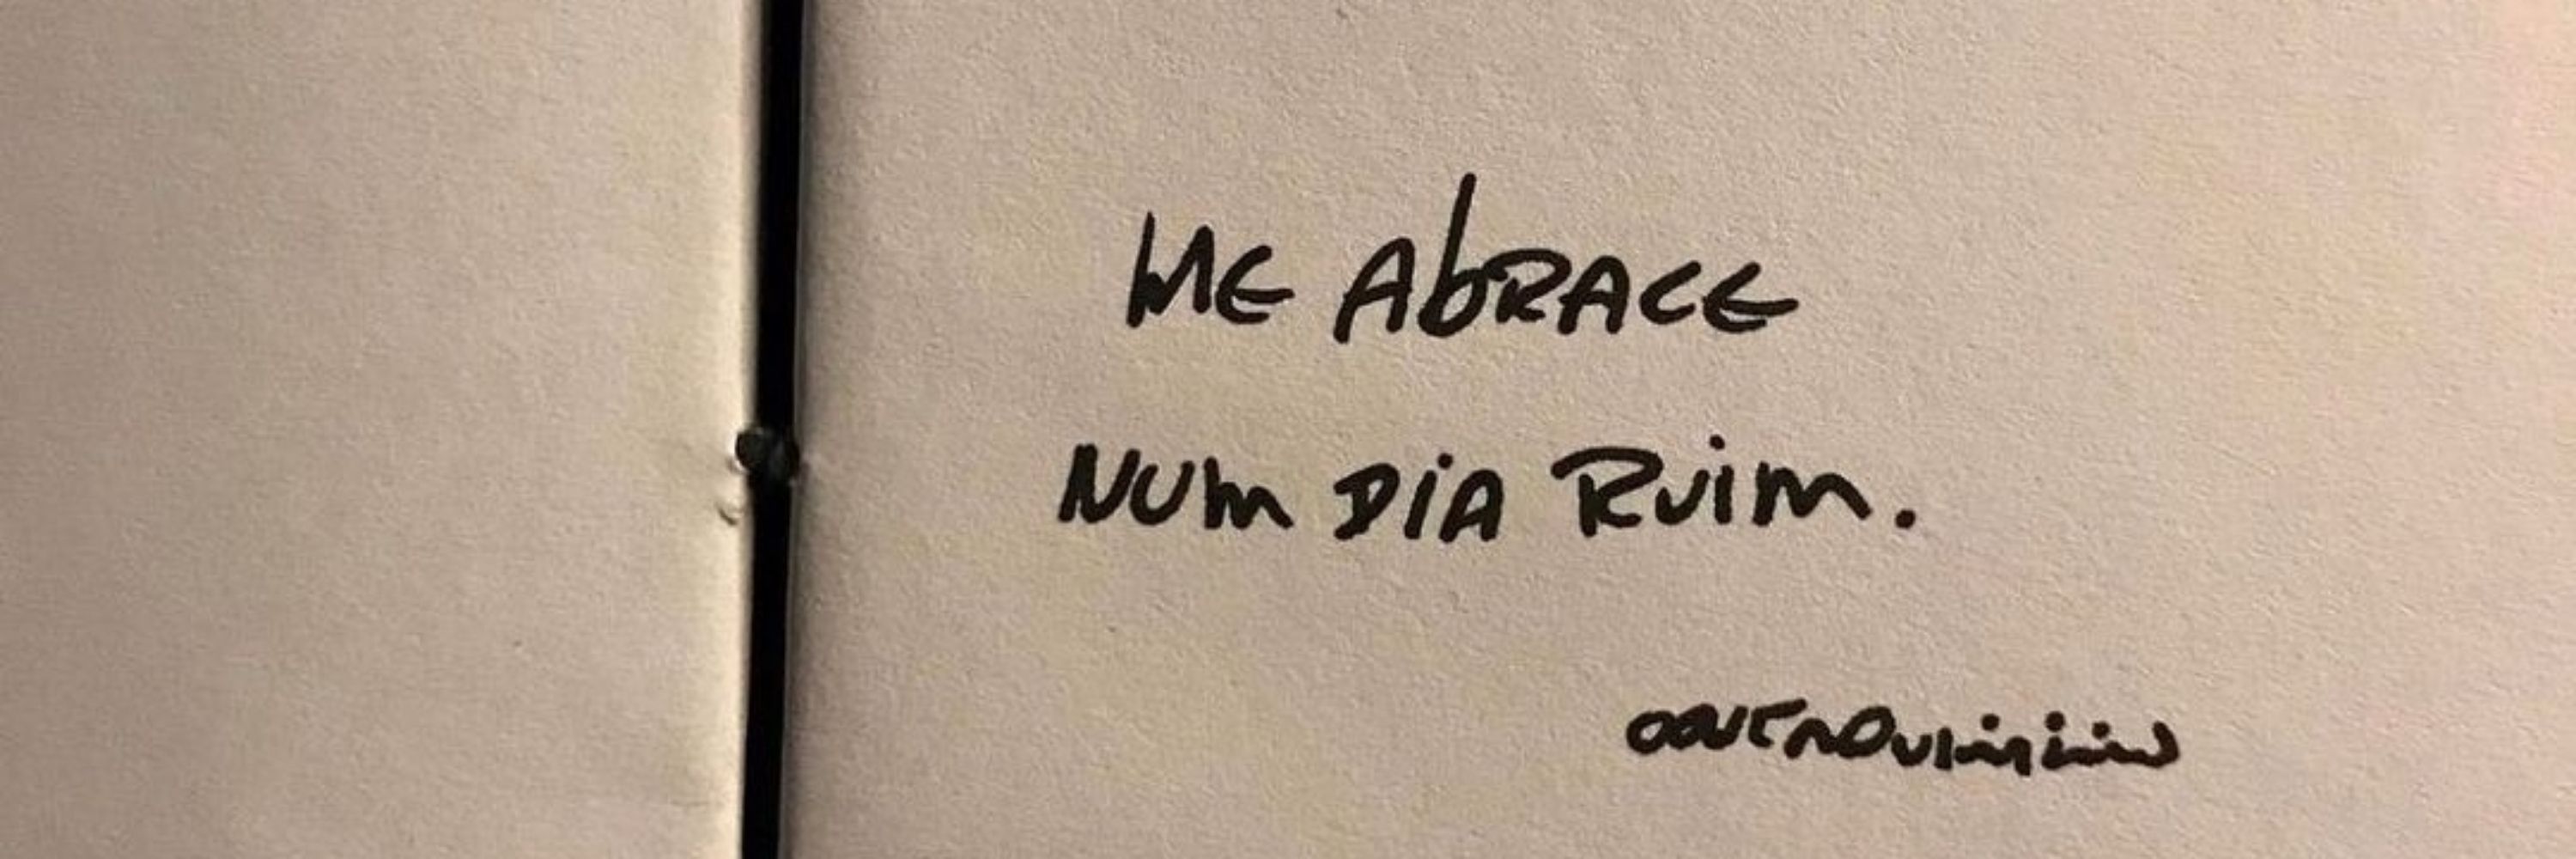 ME AbRACE
NUm DiA RUim.